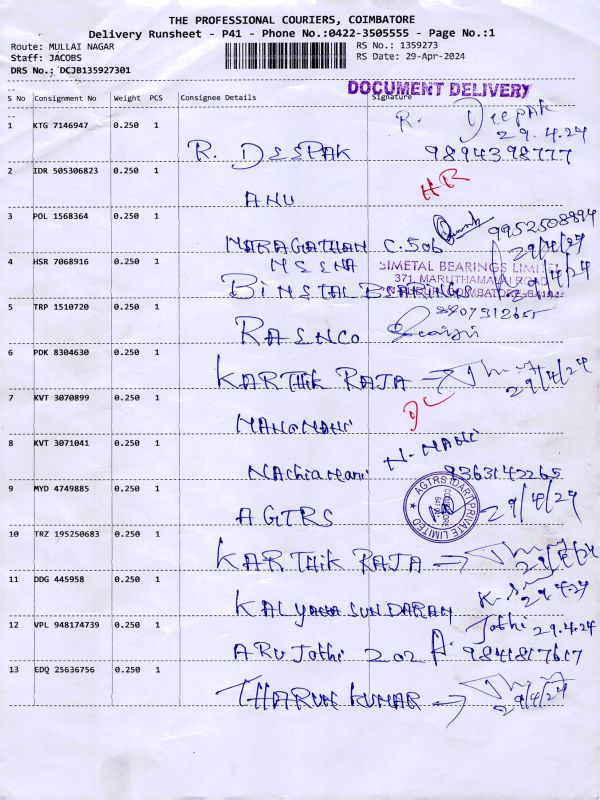 THE PROFESSIONAL COURIERS, COIMBATORE
Delivery Runsheet - P41 - Phone No.:0422-3505555 - Page No.:1
Route: MULLAI NAGAR
Staff: JACOBS
DRS No.: DCJB135927301
RS No.: 1359273
RS Date: 29-Apr-2024
DOCUMENT DELIVERY
S No Consignment No Weight PCS Consignee Details Signature
1 KTG 7146947 0.250 1 R. DEEPAK R. Deepak 29.4.24 9894398777
2 IDR 505306823 0.250 1 ANU HR
3 POL 1568364 0.250 1 MARAGATHAM C.506 9952508894 29/4/24
MEENA
4 HSR 7068916 0.250 1 BIMETAL BEARINGS
BIMETAL BEARINGS LIMITED
371, MARUTHAMALAI ROAD
5 TRP 1510720 0.250 1 RAENCO
6 PDK 8304630 0.250 1 KARTHIK RAJA 29/4/24
7 KVT 3070899 0.250 1 MANOMANI DL
8 KVT 3071041 0.250 1 NAchiamani N-MANI 9363142265
9 MYD 4749885 0.250 1 AGTRS 29/4/24
10 TRZ 195250683 0.250 1 KARTHIK RAJA 29/4/24
11 DDG 445958 0.250 1 KALYANA SUNDARAM 29.4.24
12 VPL 948174739 0.250 1 ARU Jothi 202 A Jothi 29.4.24 9841817617
13 EDQ 25636756 0.250 1 THARUN KUMAR 29/4/24